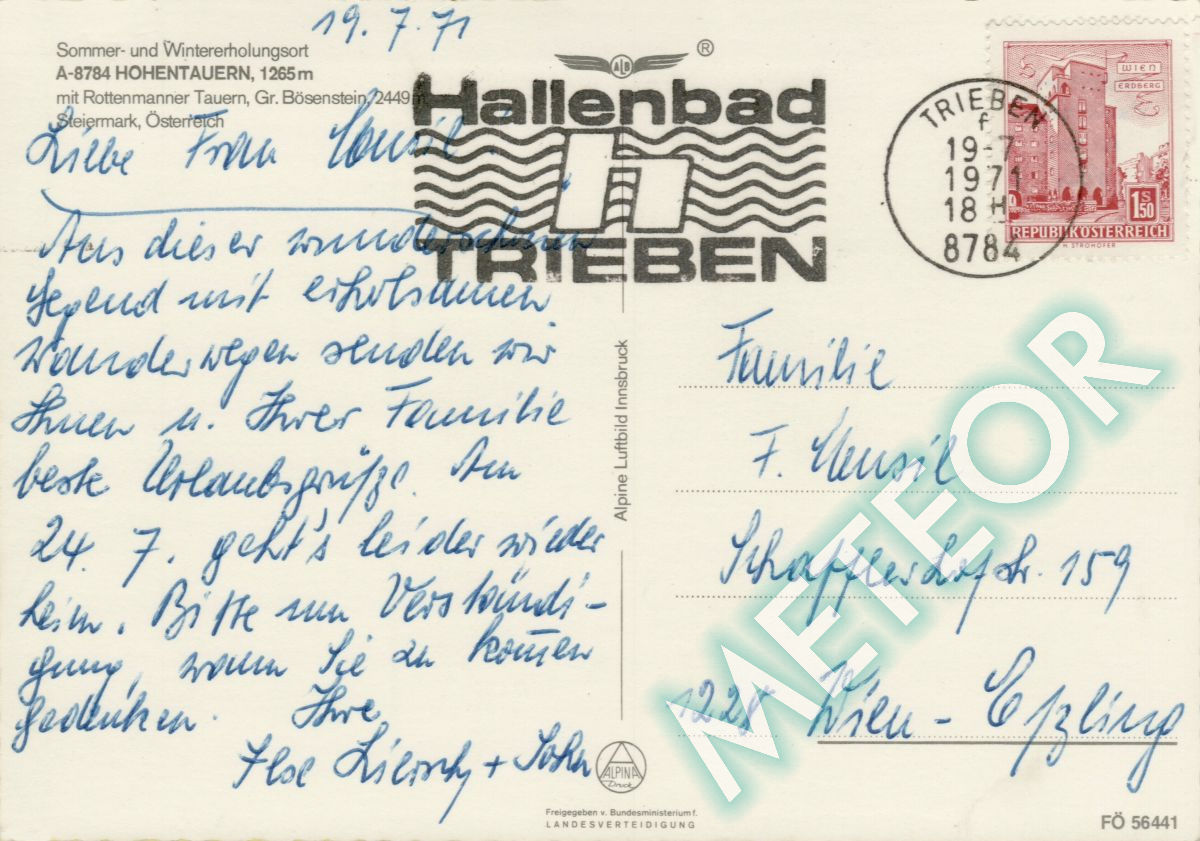 19.7.71
Sommer- und Wintererholungsort
A-8784 HOHENTAUERN, 1265 m
mit Rottenmanner Tauern, Gr. Bösenstein, 2449 m
Steiermark, Österreich
Liebe Frau Musil!
Aus dieser wunderschönen
Gegend mit erholsamen
Wanderwegen senden wir
Ihnen u. Ihrer Familie
beste Urlaubsgrüße. Am
24. 7. geht's leider wieder
heim. Bitte um Verständi-
gung, wann Sie zu kommen
gedenken. Ihre
Ilse + Sohn
ALB ®
Hallenbad
h
TRIEBEN
TRIEBEN
f
19-7
1971
18 H
8784
WIEN
ERDBERG
S
1.50
REPUBLIK ÖSTERREICH
H. STROHOFER
Alpine Luftbild Innsbruck
Familie
F. Musil
Schafflerhofstr. 159
1228 Wien - Eßling
METEOR
ALPINA
Druck
Freigegeben v. Bundesministerium f.
LANDESVERTEIDIGUNG
FÖ 56441